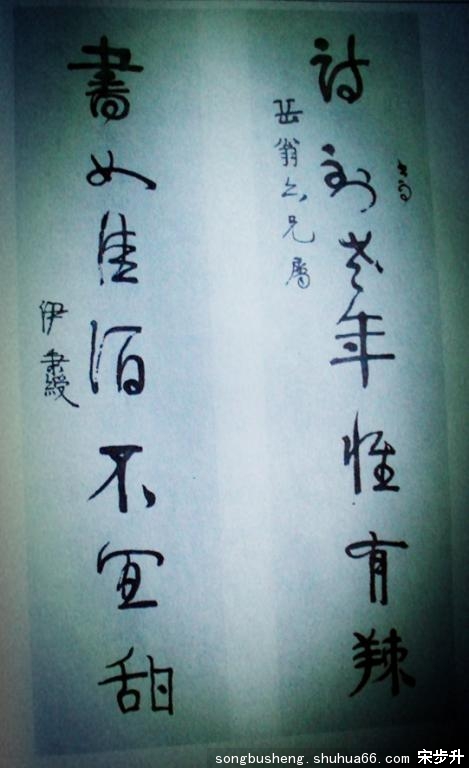 詩到老年惟有辣
翁 兄屬
書如佳酒不宜甜
伊秉綬
songbusheng.shuhua66.com 宋步升